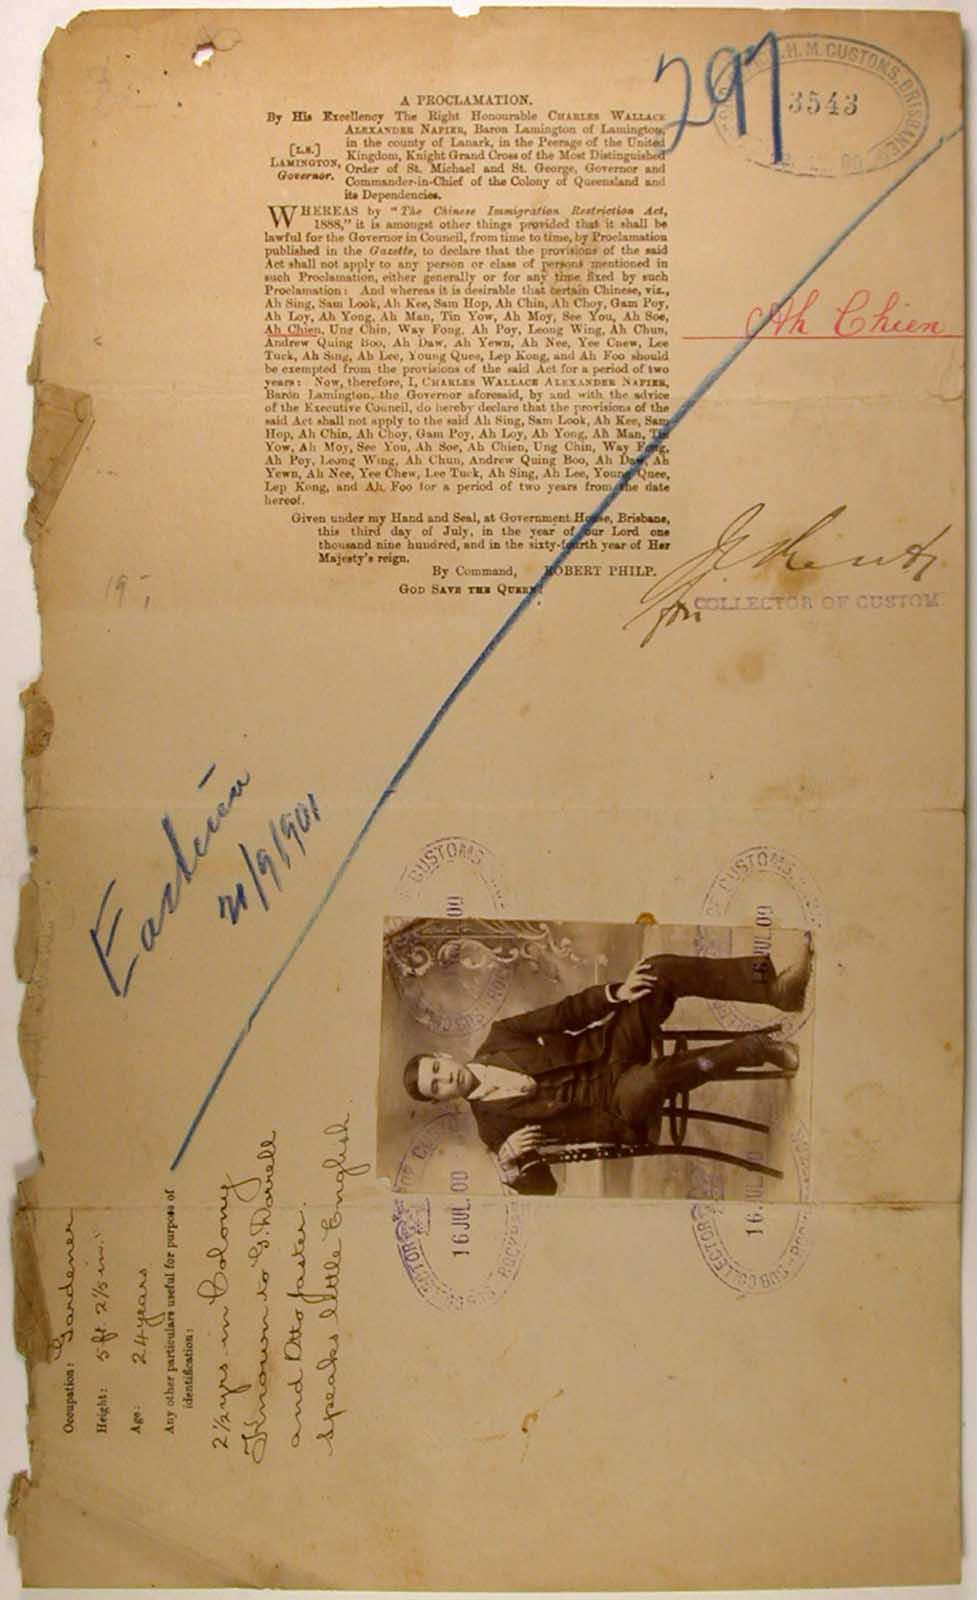 297
H. M. CUSTOMS, BRISBANE
3543
A PROCLAMATION.
By His Excellency The Right Honourable CHARLES WALLACE
ALEXANDER NAPIER, Baron Lamington of Lamington,
in the county of Lanark, in the Peerage of the United
[L.S.]
LAMINGTON,
Governor.
Kingdom, Knight Grand Cross of the Most Distinguished
Order of St. Michael and St. George, Governor and
Commander-in-Chief of the Colony of Queensland and
its Dependencies.
WHEREAS by "The Chinese Immigration Restriction Act,
1888," it is amongst other things provided that it shall be
lawful for the Governor in Council, from time to time, by Proclamation
published in the Gazette, to declare that the provisions of the said
Act shall not apply to any person or class of persons mentioned in
such Proclamation, either generally or for any time fixed by such
Proclamation: And whereas it is desirable that certain Chinese, viz.,
Ah Sing, Sam Look, Ah Kee, Sam Hop, Ah Chin, Ah Choy, Gam Poy,
Ah Loy, Ah Yong, Ah Man, Tin Yow, Ah Moy, See You, Ah Soe,
Ah Chien, Ung Chin, Way Fong, Ah Poy, Leong Wing, Ah Chun,
Andrew Quing Boo, Ah Daw, Ah Yewn, Ah Nee, Yee Chew, Lee
Tuck, Ah Sing, Ah Lee, Young Quee, Lep Kong, and Ah Foo should
be exempted from the provisions of the said Act for a period of two
years: Now, therefore, I, CHARLES WALLACE ALEXANDER NAPIER,
Baron Lamington, the Governor aforesaid, by and with the advice
of the Executive Council, do hereby declare that the provisions of the
said Act shall not apply to the said Ah Sing, Sam Look, Ah Kee, Sam
Hop, Ah Chin, Ah Choy, Gam Poy, Ah Loy, Ah Yong, Ah Man, Tin
Yow, Ah Moy, See You, Ah Soe, Ah Chien, Ung Chin, Way Fong,
Ah Poy, Leong Wing, Ah Chun, Andrew Quing Boo, Ah Daw, Ah
Yewn, Ah Nee, Yee Chew, Lee Tuck, Ah Sing, Ah Lee, Young Quee,
Lep Kong, and Ah Foo for a period of two years from the date
hereof.
Given under my Hand and Seal, at Government House, Brisbane,
this third day of July, in the year of our Lord one
thousand nine hundred, and in the sixty-fourth year of Her
Majesty's reign.
By Command, ROBERT PHILP.
GOD SAVE THE QUEEN!
Ah Chien
for COLLECTOR OF CUSTOM
Eastern
21/9/1901
CUSTOMS
16 JUL. 00
CUSTOMS
16 JUL. 00
16 JUL. 00
SUB COLLECTOR
16 JUL. 00
Occupation: Gardener
Height: 5 ft. 2½ in.
Age: 24 years
Any other particulars useful for purpose of
identification:
2½ yrs. in Colony
Known to G. Morrell
and Otto Faster.
Speaks little English.